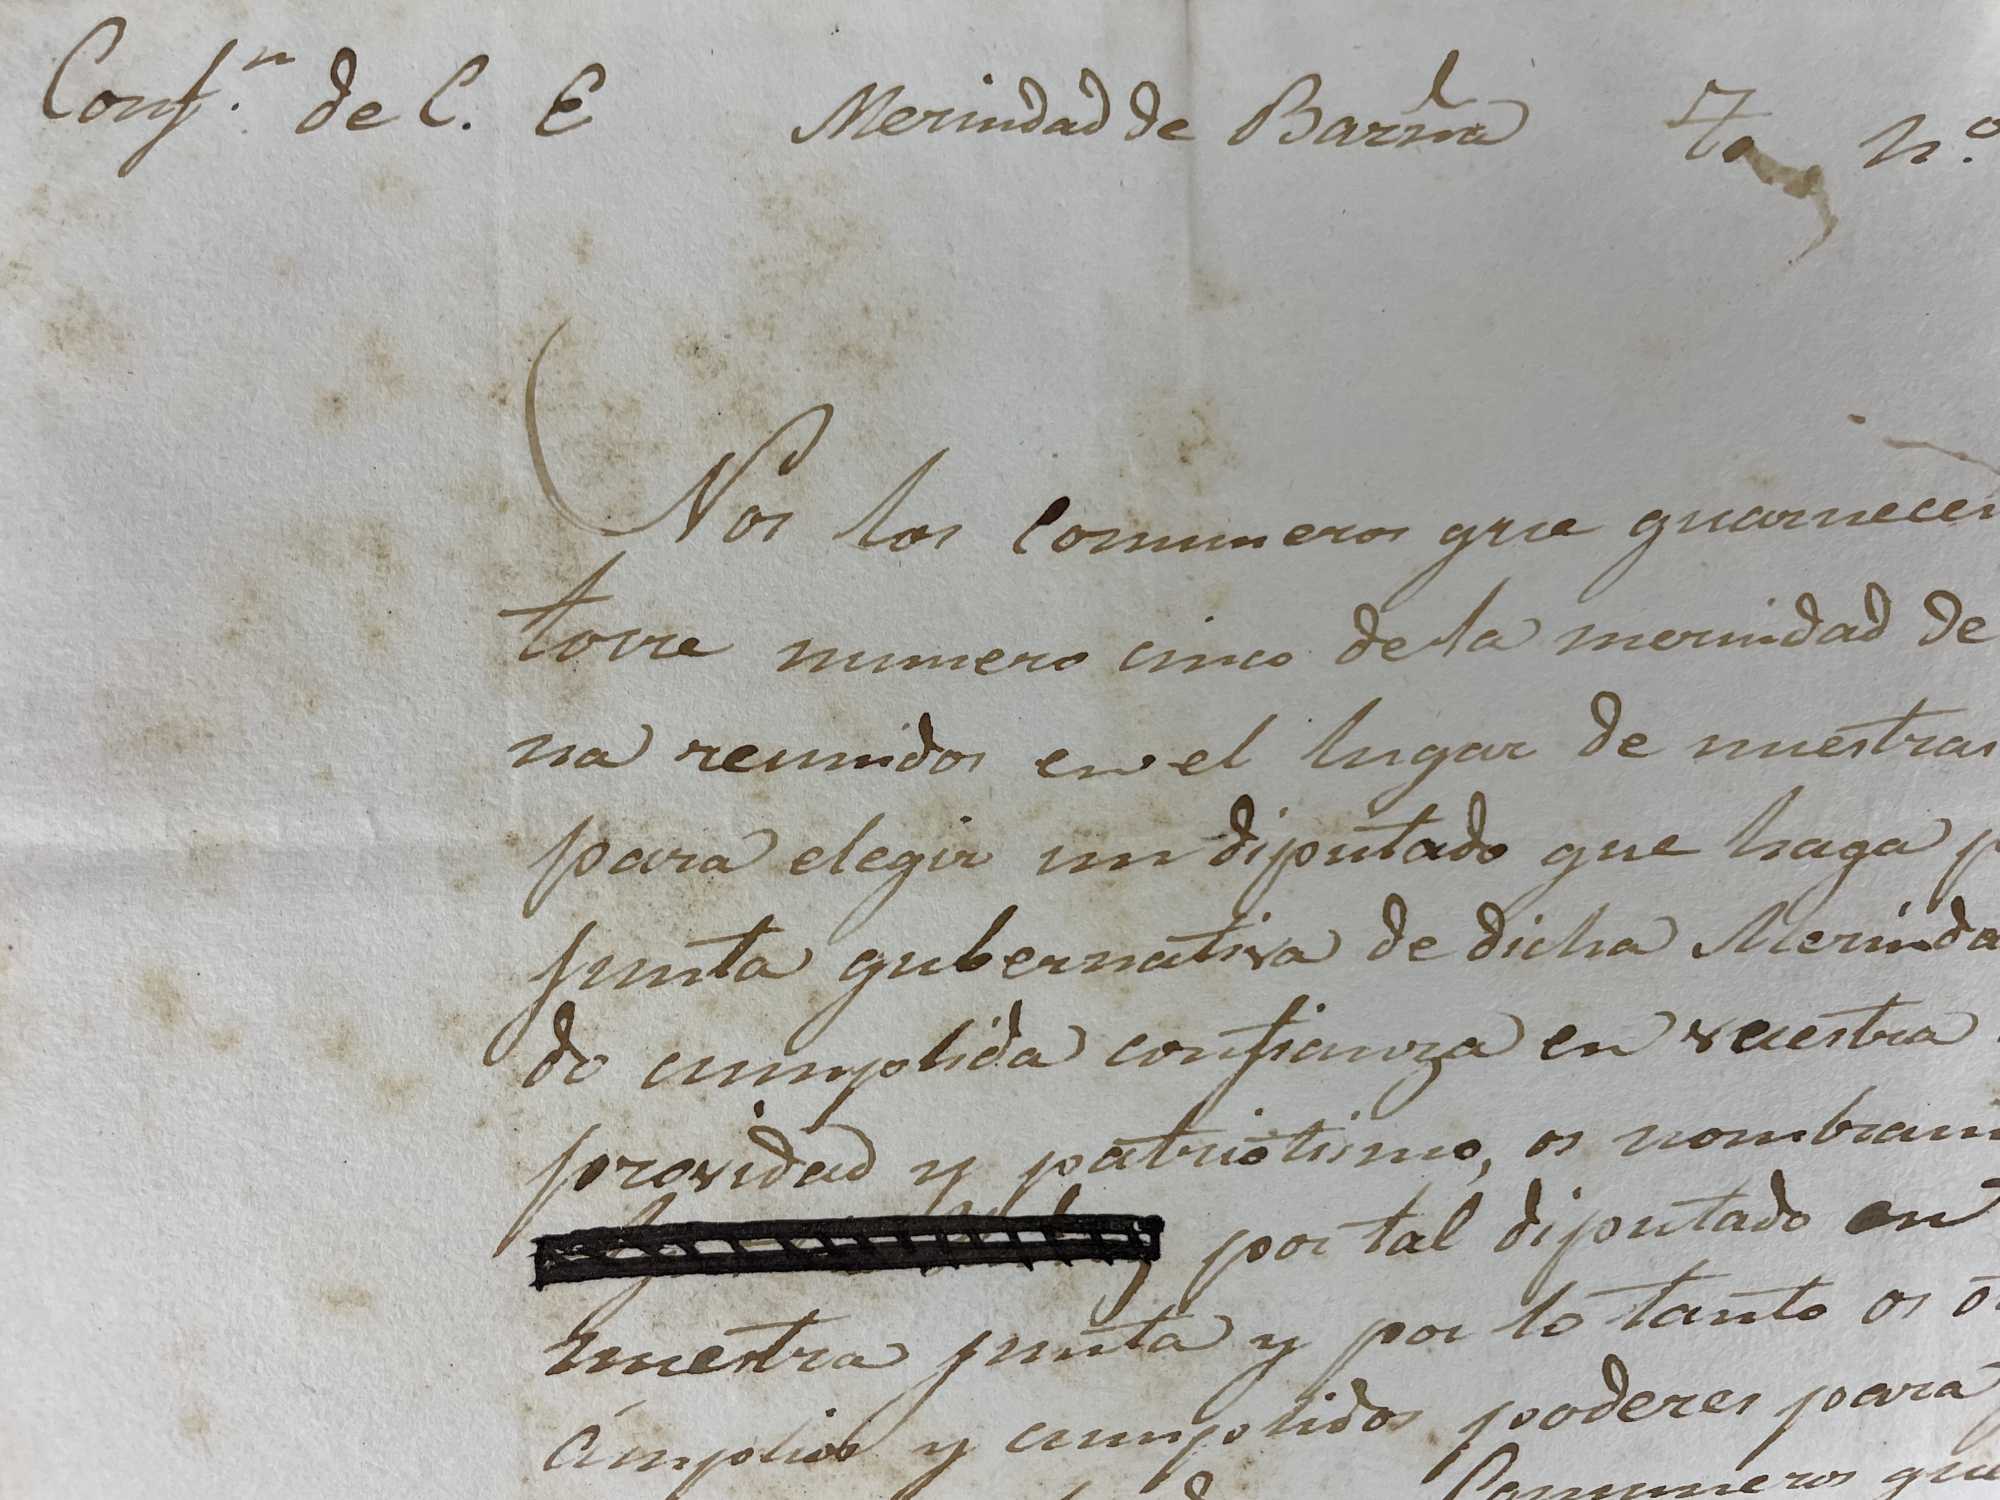 Conf.n de C. E Merindad de Barna To n.o
Nos los Comuneros que guarnecen
torre numero cinco de la merindad de
na reunidos en el lugar de nuestras
para elegir un diputado que haga
junta gubernativa de dicha Merinda
do cumplida confianza en vuestra
provídad y patriotismo, os nombram
por tal diputado en
nuestra junta y por lo tanto os
ámplios y cumplidos poderes para
Comuneros que